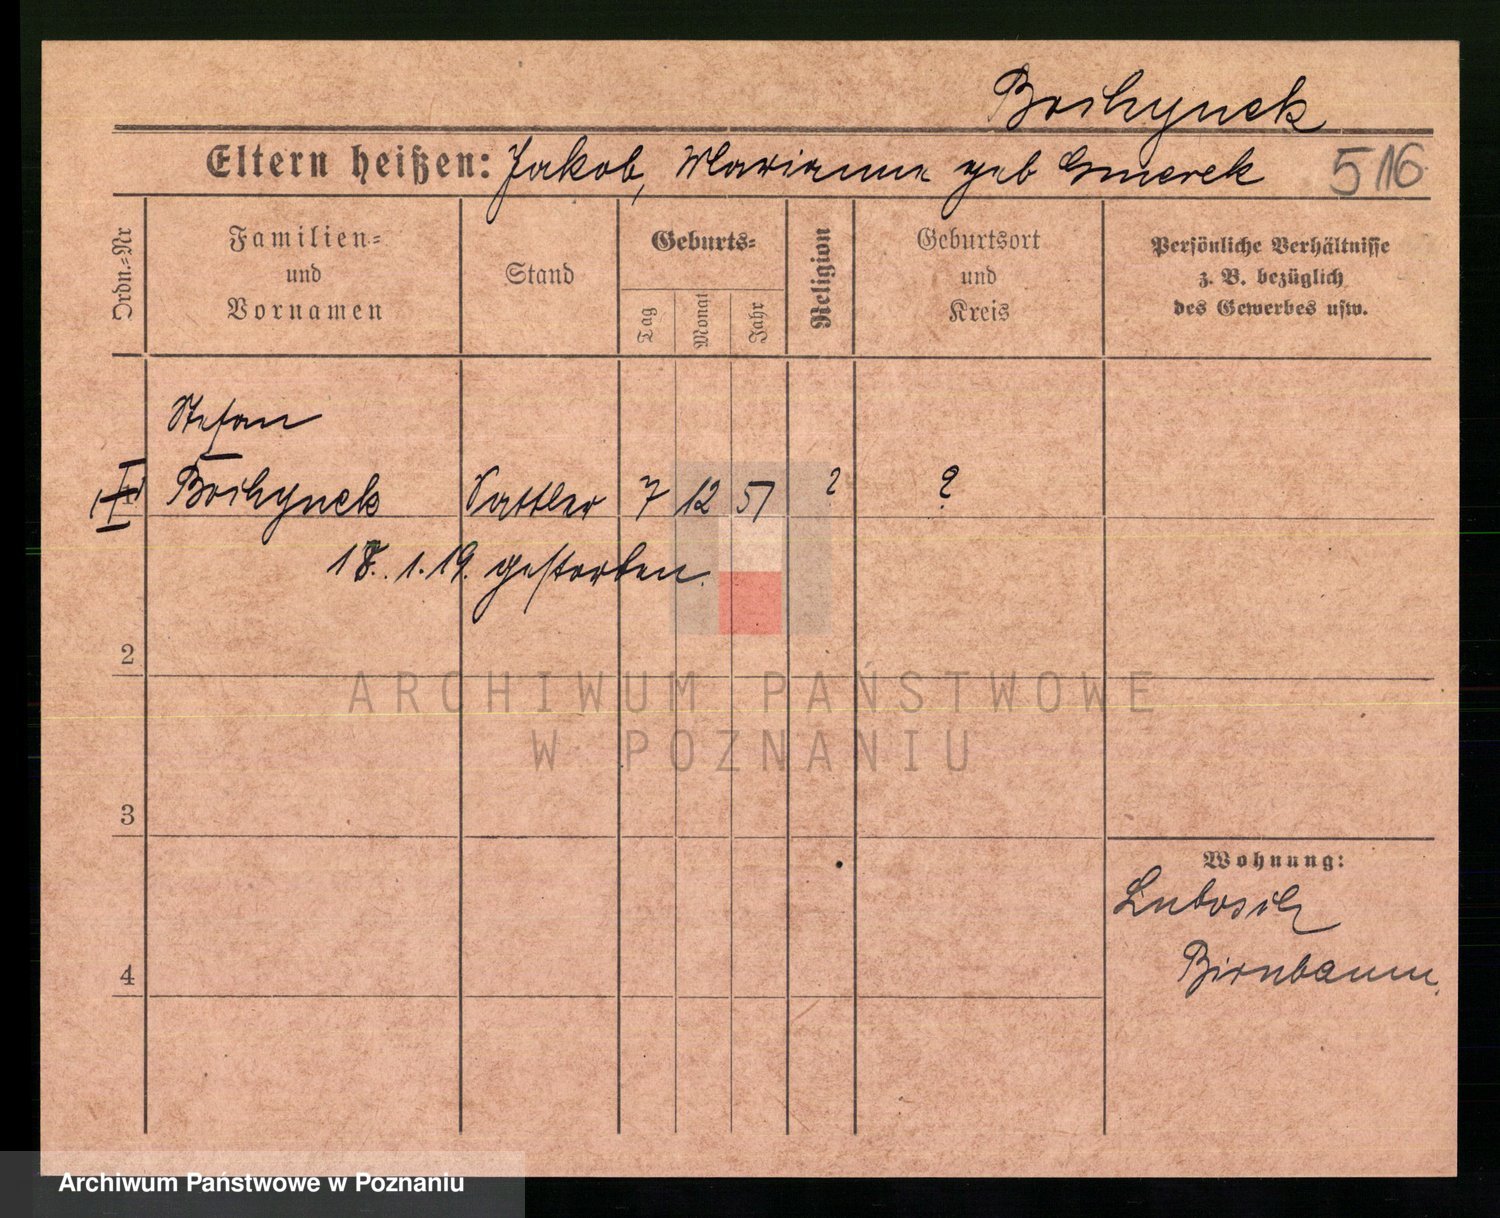 Bochynek
Eltern heißen: Jakob, Marianne geb Smerek 516
Ordn.-Nr
Familien- und Vornamen
Stand
Geburts-
Tag
Monat
Jahr
Religion
Geburtsort und Kreis
Persönliche Verhältnisse
z. B. bezüglich
des Gewerbes usw.
Stefan
Bochynek Sattler 7 12 51 ? ?
18. 1. 19. gestorben.
2
ARCHIWUM PAŃSTWOWE
W POZNANIU
3
Wohnung:
Lubosch
4
Birnbaum.
Archiwum Państwowe w Poznaniu